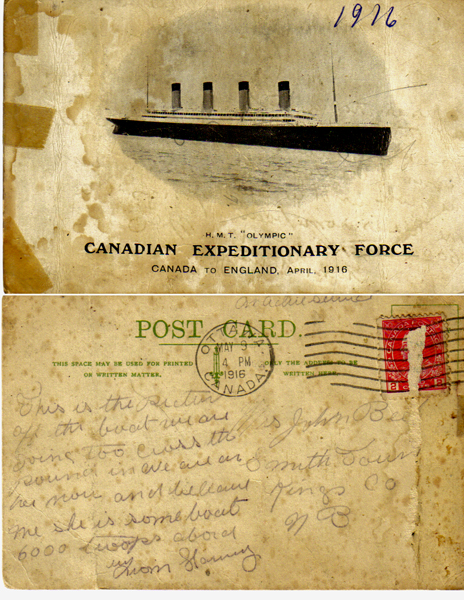 1916
H. M. T. "OLYMPIC"
CANADIAN EXPEDITIONARY FORCE
CANADA TO ENGLAND, APRIL, 1916
on active service
POST CARD.
THIS SPACE MAY BE USED FOR PRINTED
OR WRITTEN MATTER.
ONLY THE ADDRESS TO BE
WRITTEN HERE.
OTTAWA
MAY 9
4 PM
1916
CANADA
2 2
This is the picture
of the boat we are
going too cross the
pound in we are on
her now and beleave
me she is some boat
6000 troops abord
from Harvey
John
Smith Town
Kings Co
N B